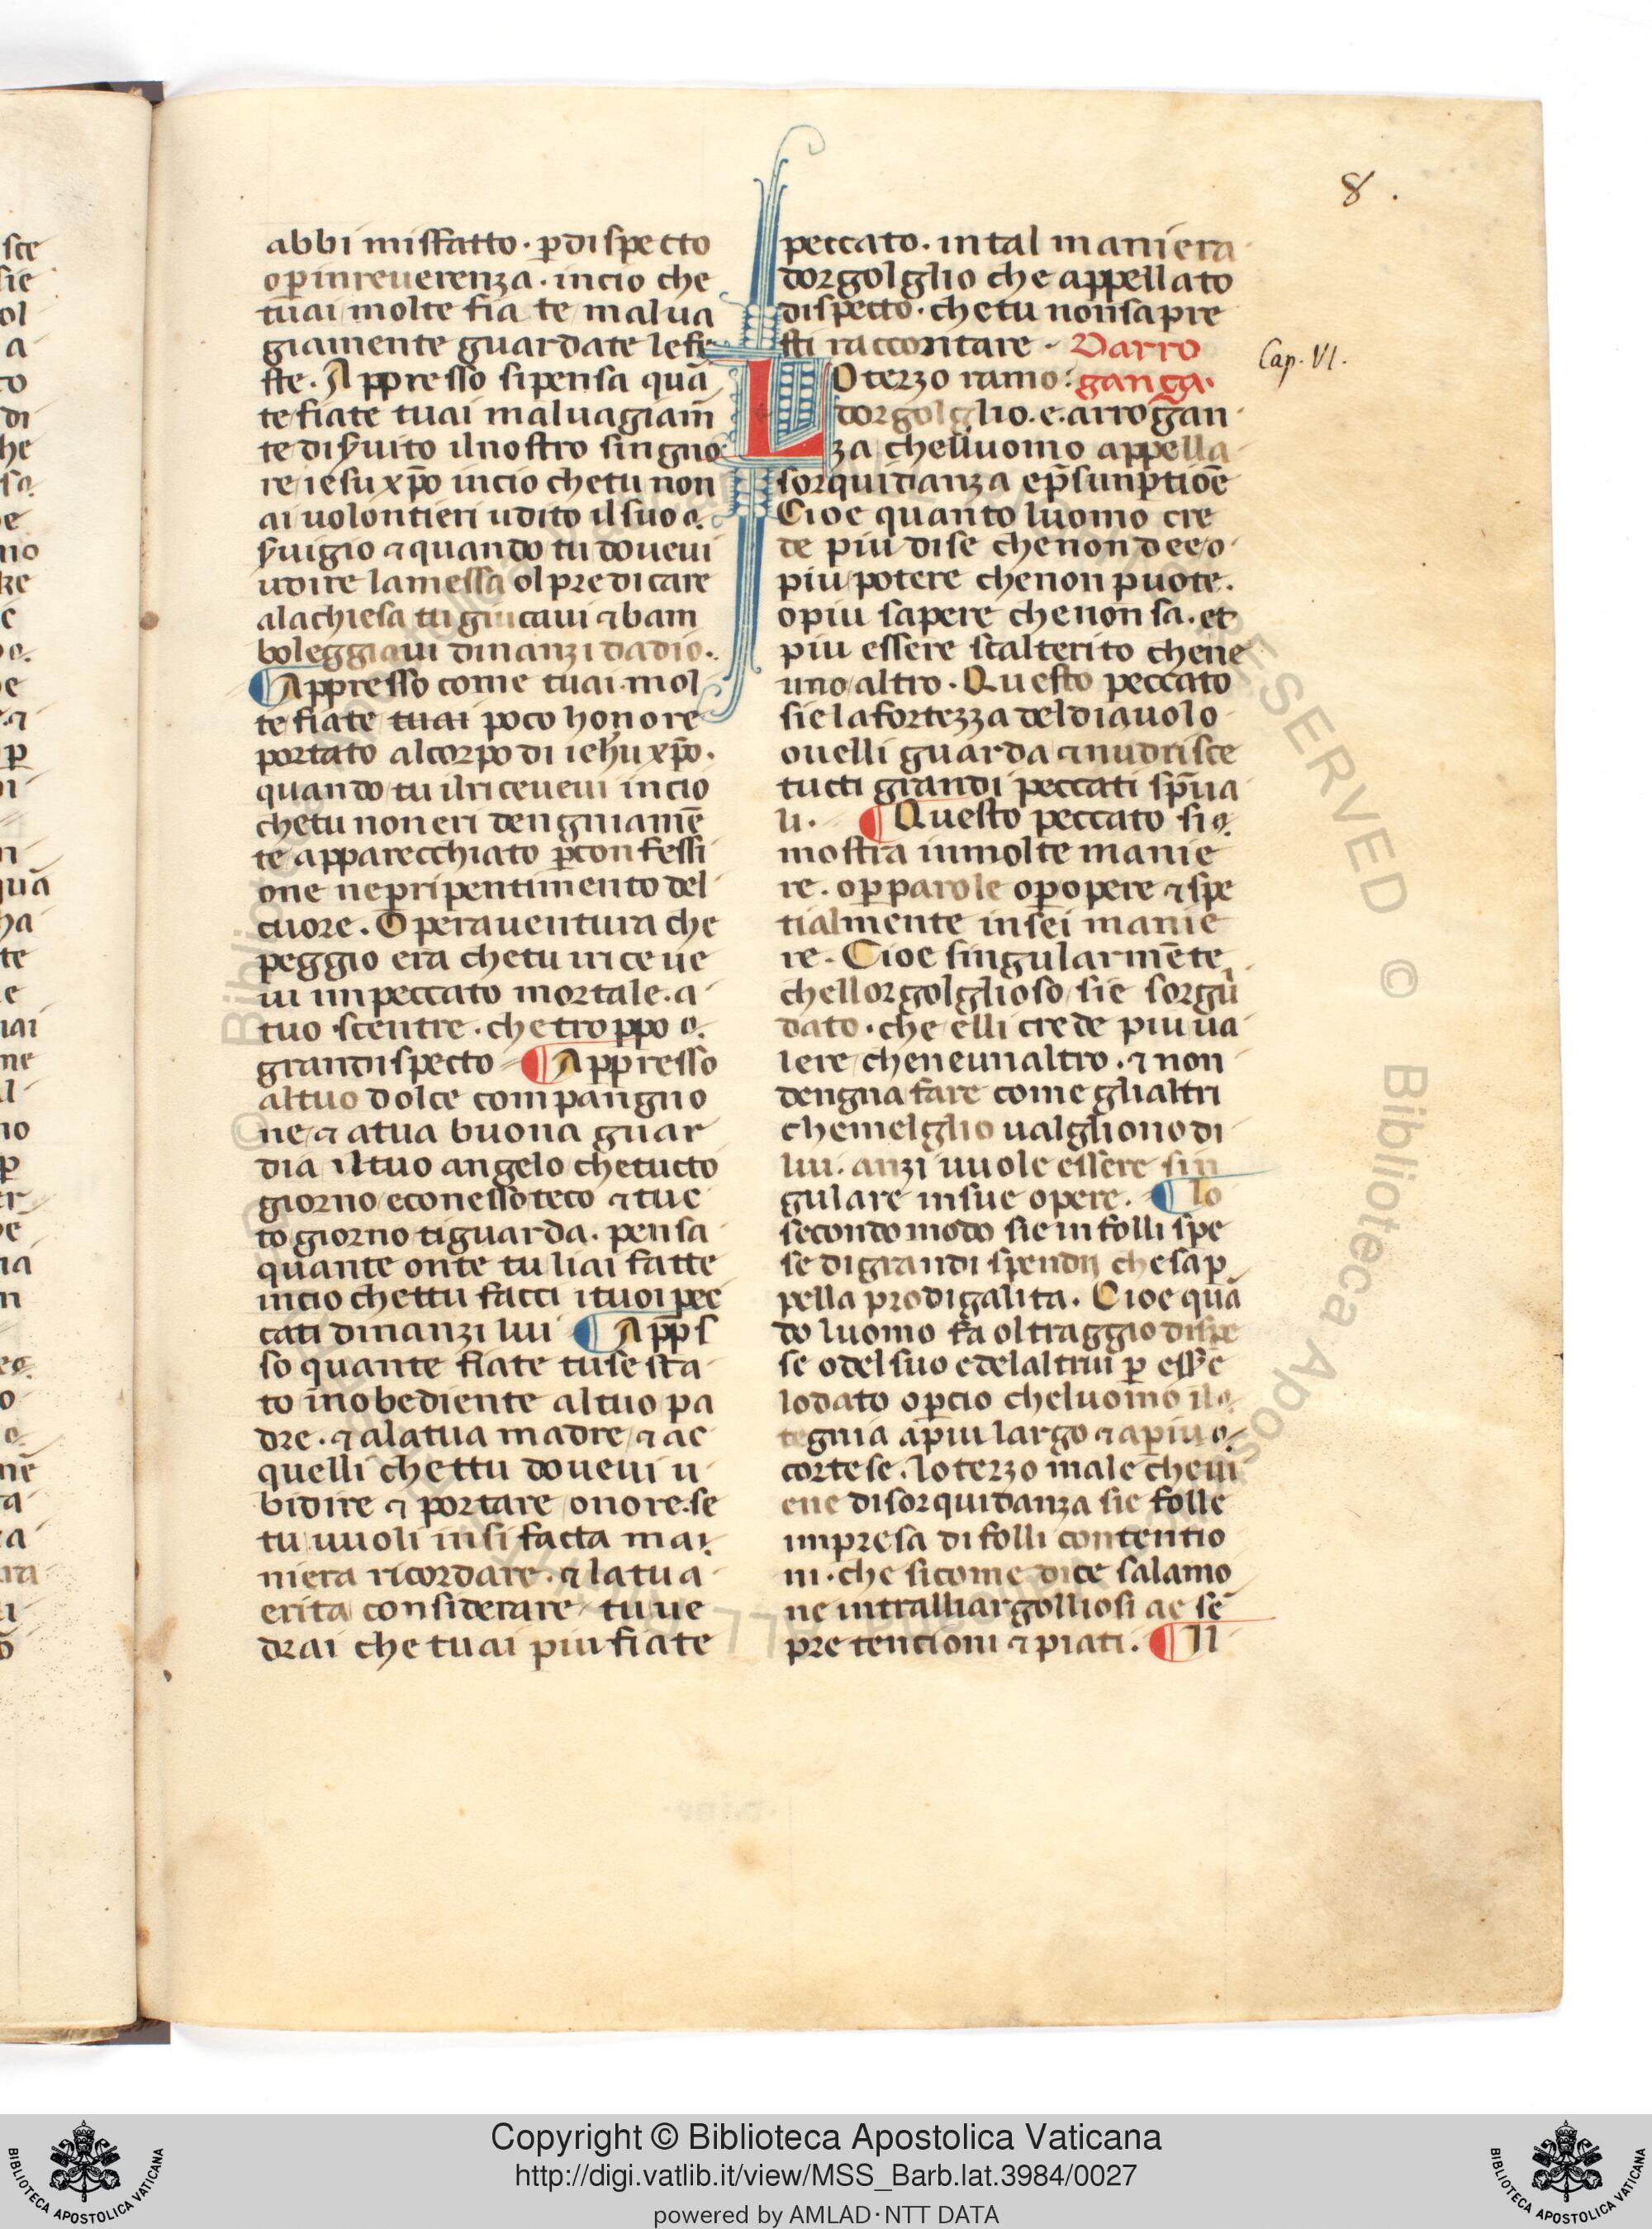 8.
abbi misfatto· ꝑdispecto
oꝑinreuerenza· incio che
tuai molte fia te malua
giamente guardate lefe
ste· Appresso sipensa quā
te fiate tuai maluagiam̄
te diẜuito ilnostro singno
re iesu xp̄o incio chetu non
ai uolontieri udito il suo
ẜuigio ⁊ quando tu doueui
udire lamessa ol predicare
alachiesa tu giucaui ⁊ bam
boleggiaui dinanzi dadio·
¶ Appresso come tuai mol
te fiate tuai poco honore
portato alcorpo di iehu xp̄o·
quando tu ilriceueui incio
chetu non eri dengniamē
te apparecchiato ꝑconfessi
one ne pripentimento del
cuore· O perauentura che
peggio era chetu riceue
ui impeccato mortale· a
tuo scentre· che troppo
grandispecto ¶ Appresso
altuo dolce compangno
ne ⁊ atua buona guar
dia il tuo angelo chetucto
giorno econesso teco ⁊ tuc
to giorno tiguarda· pensa
quante onte tu liai fatte
incio chettu facci i tuoi pec
cati dinanzi lui ¶ App̄s
so quante fiate tuse sta
to inobediente altuo pa
dre· ⁊ alatua madre ⁊ ac
quelli chettu doueui u
bidire ⁊ portare onore· se
tu uuoli insi facta ma
niera ricordare· ⁊ la tua
erita considerare tu ue
drai che tuai piu fiate
peccato· intal maniera
dorgolglio che appellato
dispecto· chetu nonsapre
sti raccontare· Darro
ganza·
Cap. VI.
LO terzo ramo
dorgolglio·e·arrogan
za chelluomo appella
sorquidanza ep̄sunptiōe
Cioe quanto luomo cre
de piu dise chenon dee o
piu potere chenon puote·
opiu sapere chenon sa· et
piu essere scalterito chene
uno altro· Questo peccato
sie la fortezza deldiauolo
ouelli guarda ⁊ nudrisce
tucti grandi peccati sp̄ua
li· ¶ Questo peccato si
mostra inmolte manie
re· oꝑparole oꝑopere ⁊ spe
tialmente insei manie
re· Cioe singularmēte
chellorgolglioso sie sorgui
dato· che elli crede piu ua
lere cheneunaltro· ⁊ non
dengna fare come glialtri
chemelglio ualgliono di
lui· anzi uuole essere sin
gulare insue opere· ¶ lo
secondo modo sie in folli spe
se digrandi spendij chesap
pella prodigalita· Cioe quā
do luomo fa oltraggio dispe
se odelsuo edelaltrui ꝑ esse
lodato oꝑcio cheluomo il
tegnia apiu largo ⁊ apiu
cortese· lo terzo male cheui
ene disorquidanza sie folle
impresa di folli contentio
ni· che sicome dice salamo
ne intralliargolliosi ae sē
pre tencioni ⁊ piati· ¶ Il
Copyright © Biblioteca Apostolica Vaticana
http://digi.vatlib.it/view/MSS_Barb.lat.3984/0027
powered by AMLAD·NTT DATA
BIBLIOTECA APOSTOLICA VATICANA
BIBLIOTECA APOSTOLICA VATICANA